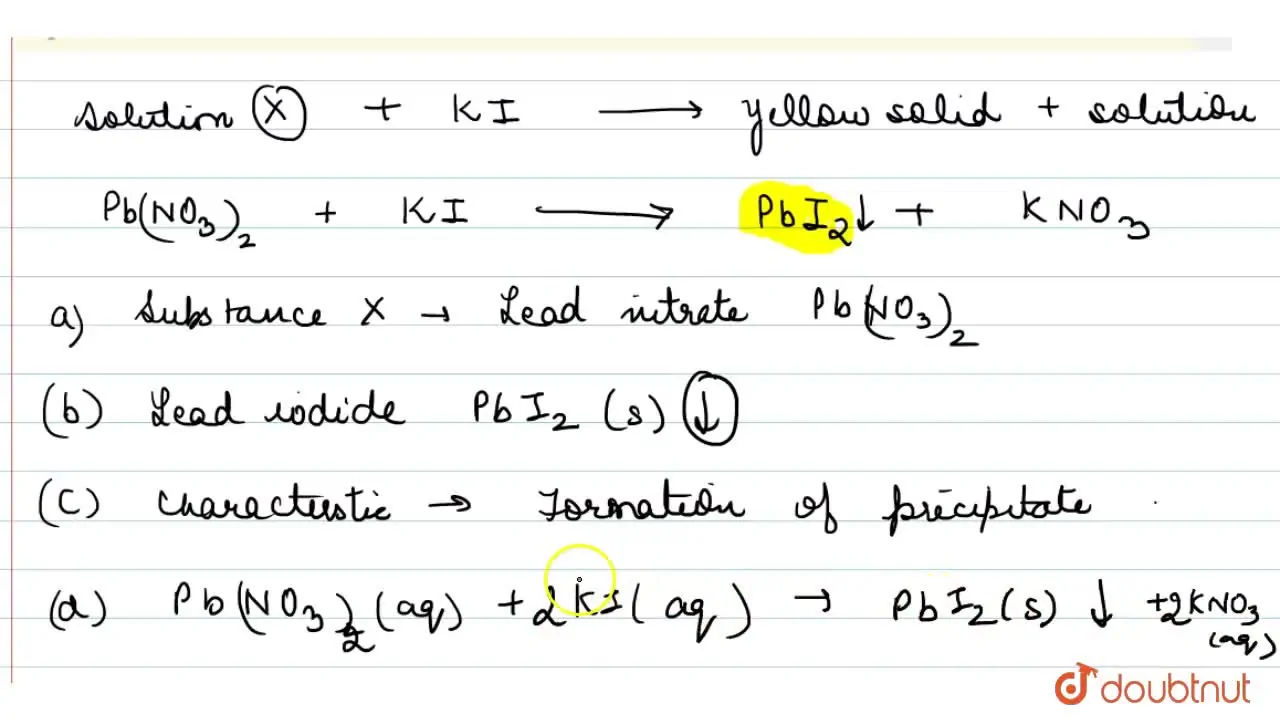 solution X + KI → yellow solid + solution
Pb(NO3)2 + KI → PbI2↓ + KNO3
a) Substance X → Lead nitrate Pb(NO3)2
(b) Lead iodide PbI2 (s) ↓
(C) Characteristic → Formation of precipitate
(d) Pb(NO3)2 (aq) + 2KI (aq) → PbI2(s) ↓ + 2KNO3 (aq)
doubtnut